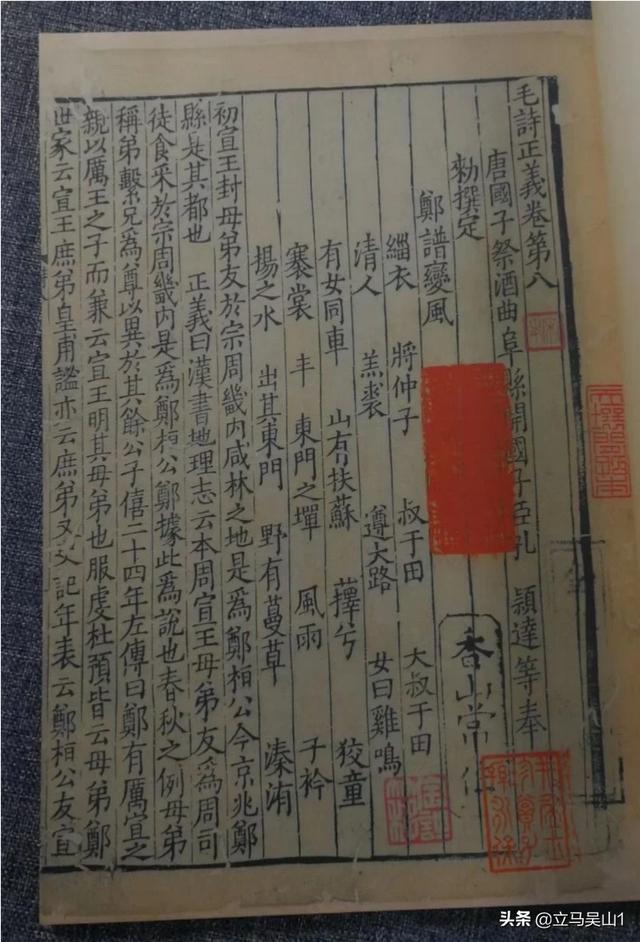 毛詩正義卷第八
唐國子祭酒曲阜縣開國子臣孔 穎達等奉
勑撰定
鄭譜變風
緇衣 將仲子 叔于田 大叔于田
清人 羔裘 遵大路 女曰雞鳴
有女同車 山有扶蘇 蘀兮 狡童
褰裳 丰 東門之墠 風雨 子衿
揚之水 出其東門 野有蔓草 溱洧
初宣王封母弟友於宗周畿內咸林之地是爲鄭桓公今京兆鄭
縣是其都也 正義曰漢書地理志云本周宣王母弟友爲周司
徒食采於宗周畿內是爲鄭桓公鄭據此爲說也春秋之例母弟
稱弟繫兄爲尊以異於其餘公子僖二十四年左傳曰鄭有厲宣之
親以厲王之子而兼云宣王明其母弟也服虔杜預皆云母弟鄭
世家云宣王庶弟皇甫謐亦云庶弟又史記年表云鄭桓公友宣
香山常住
头条 @立马吴山1